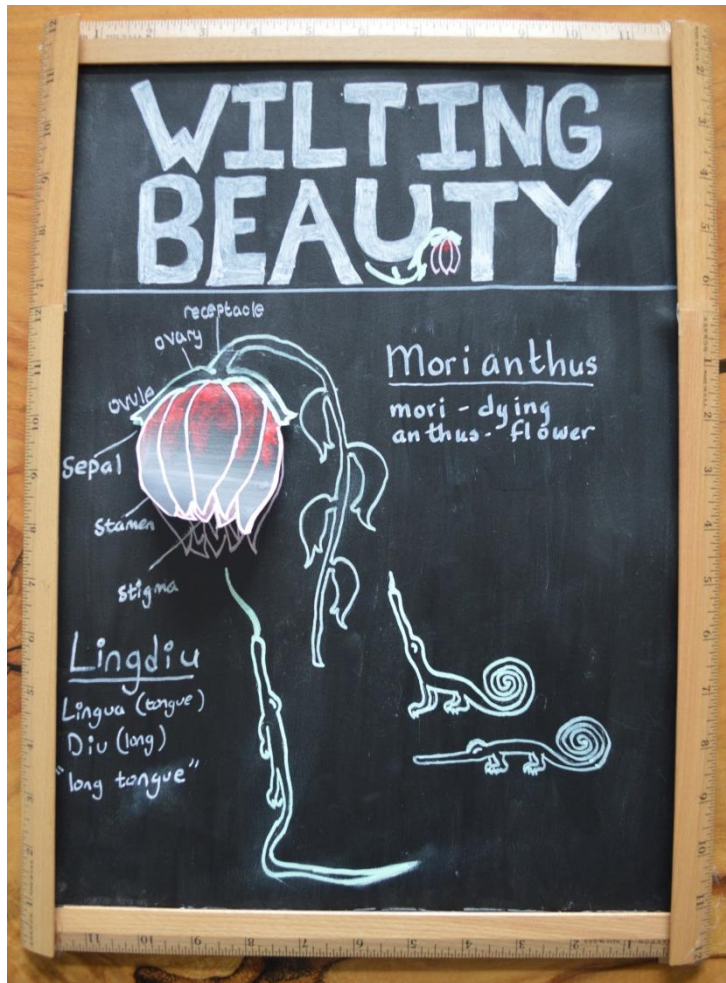 WILTING
BEAUTY
receptacle
ovary
ovule
Sepal
stamen
stigma
Mori anthus
mori - dying
anthus - flower
Lingdiu
Lingua (tongue)
Diu (long)
"long tongue"